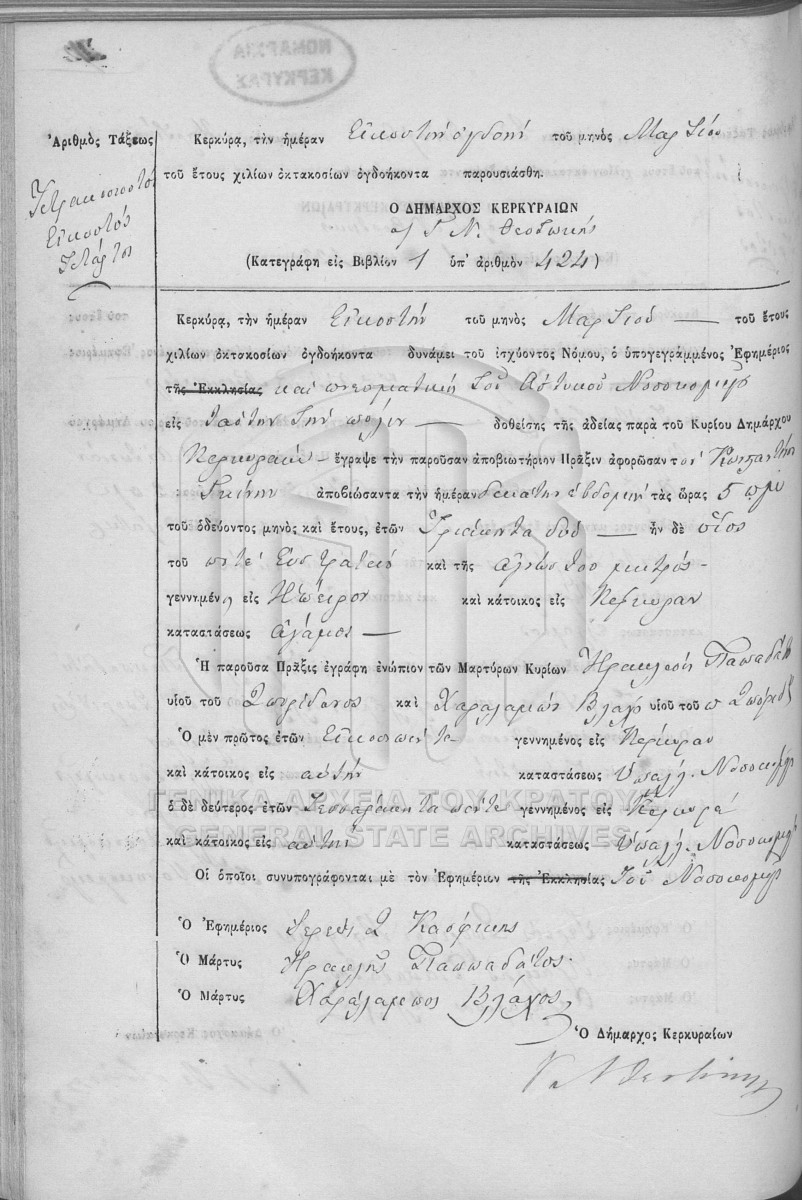 ΝΟΜΑΡΧΙΑ
ΚΕΡΚΥΡΑΣ
Ἀριθμὸς Τάξεως
Τετρακοσιοστός
Εἰκοστός
Τέταρτος
Κερκύρᾳ, τὴν ἡμέραν Εἰκοστὴν ὀγδόην τοῦ μηνὸς Μαρτίου
τοῦ ἔτους χιλίων ὀκτακοσίων ὀγδοήκοντα παρουσιάσθη.
Ο ΔΗΜΑΡΧΟΣ ΚΕΡΚΥΡΑΙΩΝ
Γ. Ν. Θεοτόκης
(Κατεγράφη εἰς Βιβλίον 1 ὑπ' ἀριθμὸν 424)
Κερκύρᾳ, τὴν ἡμέραν Εἰκοστὴν τοῦ μηνὸς Μαρτίου τοῦ ἔτους
χιλίων ὀκτακοσίων ὀγδοήκοντα δυνάμει τοῦ ἰσχύοντος Νόμου, ὁ ὑπογεγραμμένος Ἐφημέριος
τῆς Ἐκκλησίας καὶ πνευματικὸς τοῦ Ἀστυκοῦ Νοσοκομείου
εἰς ταύτην τὴν πόλιν δοθείσης τῆς ἀδείας παρὰ τοῦ Κυρίου Δημάρχου
Κερκυραίων ἔγραψε τὴν παροῦσαν ἀποβιωτήριον Πρᾶξιν ἀφορῶσαν τὸν Κωνσταντῖνον
ἀποβιώσαντα τὴν ἡμέραν δεκάτην ἑβδόμην τὰς ὥρας 5 π.μ.
τοῦ ὁδεύοντος μηνὸς καὶ ἔτους, ἐτῶν Τριάκοντα δύο ἦν δὲ υἱὸς
τοῦ ποτέ Εὐστρατίου καὶ τῆς ἀγνώστου μητρός
γεννημένος εἰς Ἤπειρον καὶ κάτοικος εἰς Κέρκυραν
καταστάσεως ἄγαμος
Ἡ παροῦσα Πρᾶξις ἐγράφη ἐνώπιον τῶν Μαρτύρων Κυρίων Ἡρακλέους Παππαδάτου
υἱοῦ τοῦ Σπυρίδωνος καὶ Χαραλάμπους Βλάχου υἱοῦ τοῦ π. Σπυρίδ.
Ὁ μὲν πρῶτος ἐτῶν Εἰκοσιπέντε γεννημένος εἰς Κέρκυραν
καὶ κάτοικος εἰς αὐτὴν καταστάσεως Ὑπάλλ. Νοσοκομείου
ὁ δὲ δεύτερος ἐτῶν Τεσσαράκοντα πέντε γεννημένος εἰς Κέρκυρα
καὶ κάτοικος εἰς αὐτὴν καταστάσεως Ὑπάλλ. Νοσοκομείου
Οἱ ὁποῖοι συνυπογράφονται μὲ τὸν Ἐφημέριον τῆς Ἐκκλησίας τοῦ Νοσοκομείου
Ὁ Ἐφημέριος Ἱερεὺς Σ.
Ὁ Μάρτυς Ἡρακλῆς Παππαδάτος
Ὁ Μάρτυς Χαράλαμπος Βλάχος
Ὁ Δήμαρχος Κερκυραίων
Γ Ν Θεοτόκης
ΓΕΝΙΚΑ ΑΡΧΕΙΑ ΤΟΥ ΚΡΑΤΟΥΣ
GENERAL STATE ARCHIVES